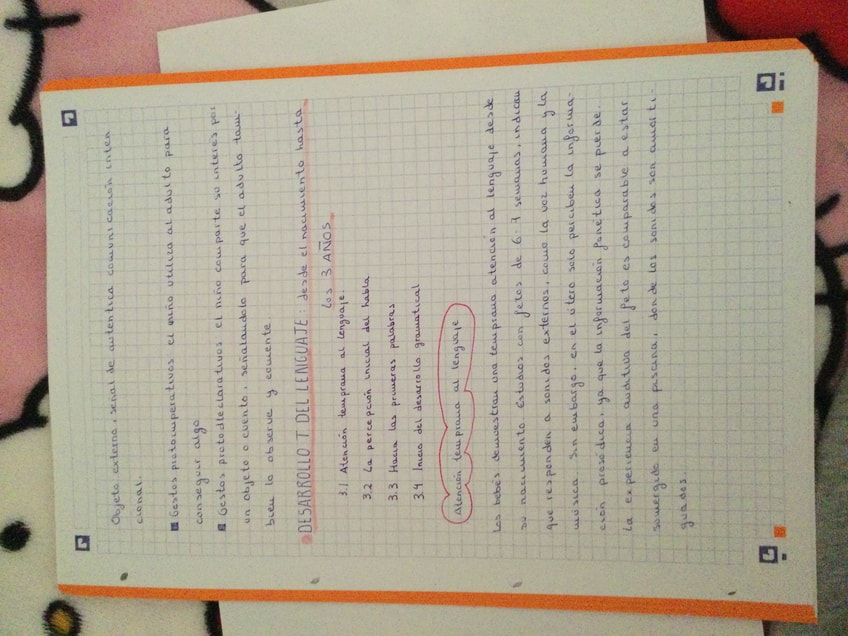 Objeto externo, señal de autentica comunicación inten
cional.
Gestos protoimperativos el niño utiliza al adulto para
conseguir algo
Gestos protodeclarativos el niño comparte su interes por
un objeto o cuento, señalandolo para que el adulto tam-
bien lo observe y comente
DESARROLLO T DEL LENGUAJE: desde el nacimiento hasta
los 3 AÑOS
3.1 Atención temprana al lenguaje.
3.2 La percepción inicial del habla
3.3 Hacia las primeras palabras
3.4 Inicio del desarrollo gramatical
Atención temprana al lenguaje
Los bebés demuestran una temprana atención al lenguaje desde
su nacimiento Estudios con fetos de 6. semanas, indican
que responden a sonidos externos, como la voz humana y la
música. Sin embargo, en el útero solo perciben la informa-
ción prosódica, ya que la información fonética se pierde.
La experiencia auditiva del feto es comparable a estar
somergido en una piscina, donde los sonidos son amorti-
guados